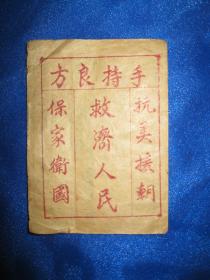 手持良方
抗美援朝
救濟人民
保家衛國